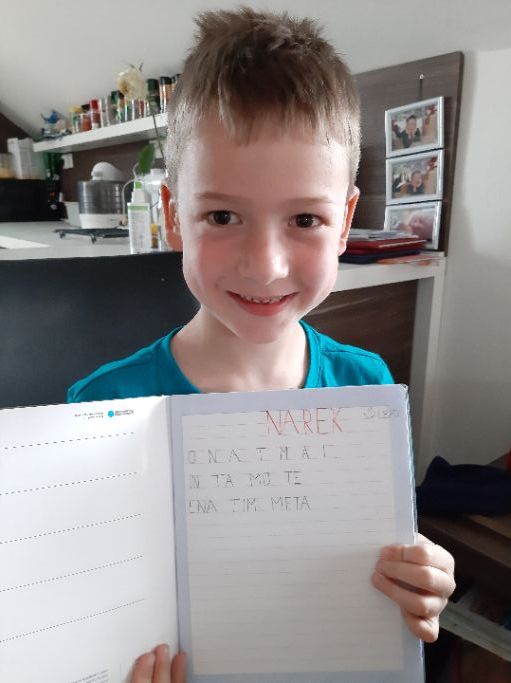 NAREK
O N A T M A I
N TA MO TE
ENA TIM META